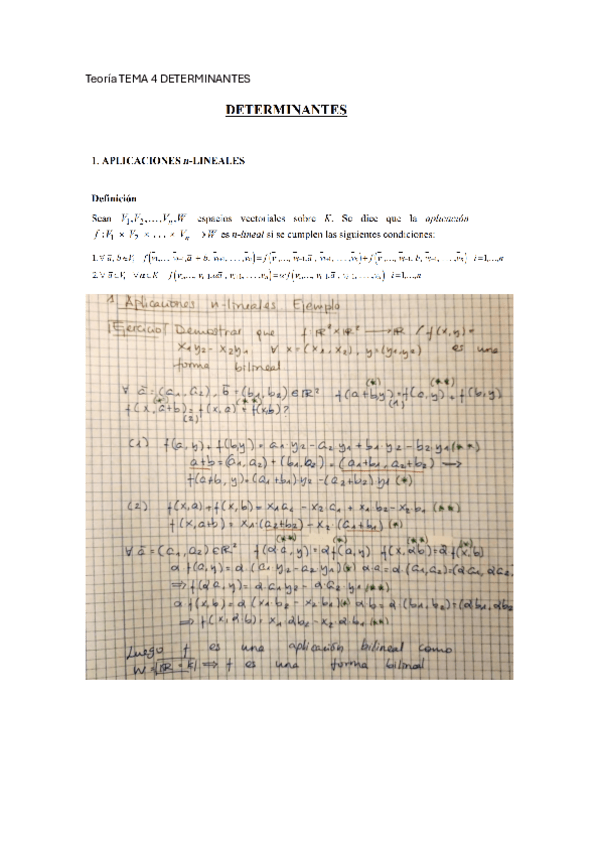 Teoría TEMA 4 DETERMINANTES
DETERMINANTES
1. APLICACIONES n-LINEALES
Definición
Sean V₁,V₂,…,Vₙ,W espacios vectoriales sobre K. Se dice que la aplicación
f : V₁ × V₂ × … × Vₙ → W es n-lineal si se cumplen las siguientes condiciones:
1. Aplicaciones n-lineales Ejemplo
Ejercicio Demostrar que f: ℝ²×ℝ² → ℝ / f(x,y) =
x₁y₂ - x₂y₁ ∀ x = (x₁,x₂), y = (y₁,y₂) es una
forma bilineal
∀ ā = (a₁,a₂), b̄ = (b₁,b₂) ∈ ℝ²
(1) f(a,y) + f(b,y) = a₁y₂ - a₂y₁ + b₁y₂ - b₂y₁ (**)
a+b = (a₁,a₂) + (b₁,b₂) = (a₁+b₁, a₂+b₂) →
f(a+b, y) = (a₁+b₁)y₂ - (a₂+b₂)y₁ (*)
(2) f(x,a) + f(x,b) = x₁a₂ - x₂a₁ + x₁b₂ - x₂b₁ (**)
f(x,a+b) = x₁(a₂+b₂) - x₂(a₁+b₁) (*)
∀ ā = (a₁,a₂) ∈ ℝ² f(α·a,y) = αf(a,y) f(x,αb) = αf(x,b)
α·f(a,y) = α·(a₁y₂ - a₂y₁) (*) α·a = α·(a₁,a₂) = (αa₁, αa₂
⇒ f(αa,y) = α·a₁y₂ - α·a₂y₁ (**)
α·f(x,b) = α(x₁b₂ - x₂b₁) (*) α·b = α·(b₁,b₂) = (αb₁, αb₂
⇒ f(x,α·b) = x₁·αb₂ - x₂·αb₁ (**)
Luego f es una aplicación bilineal como
W = ℝ = K ⇒ f es una forma bilineal